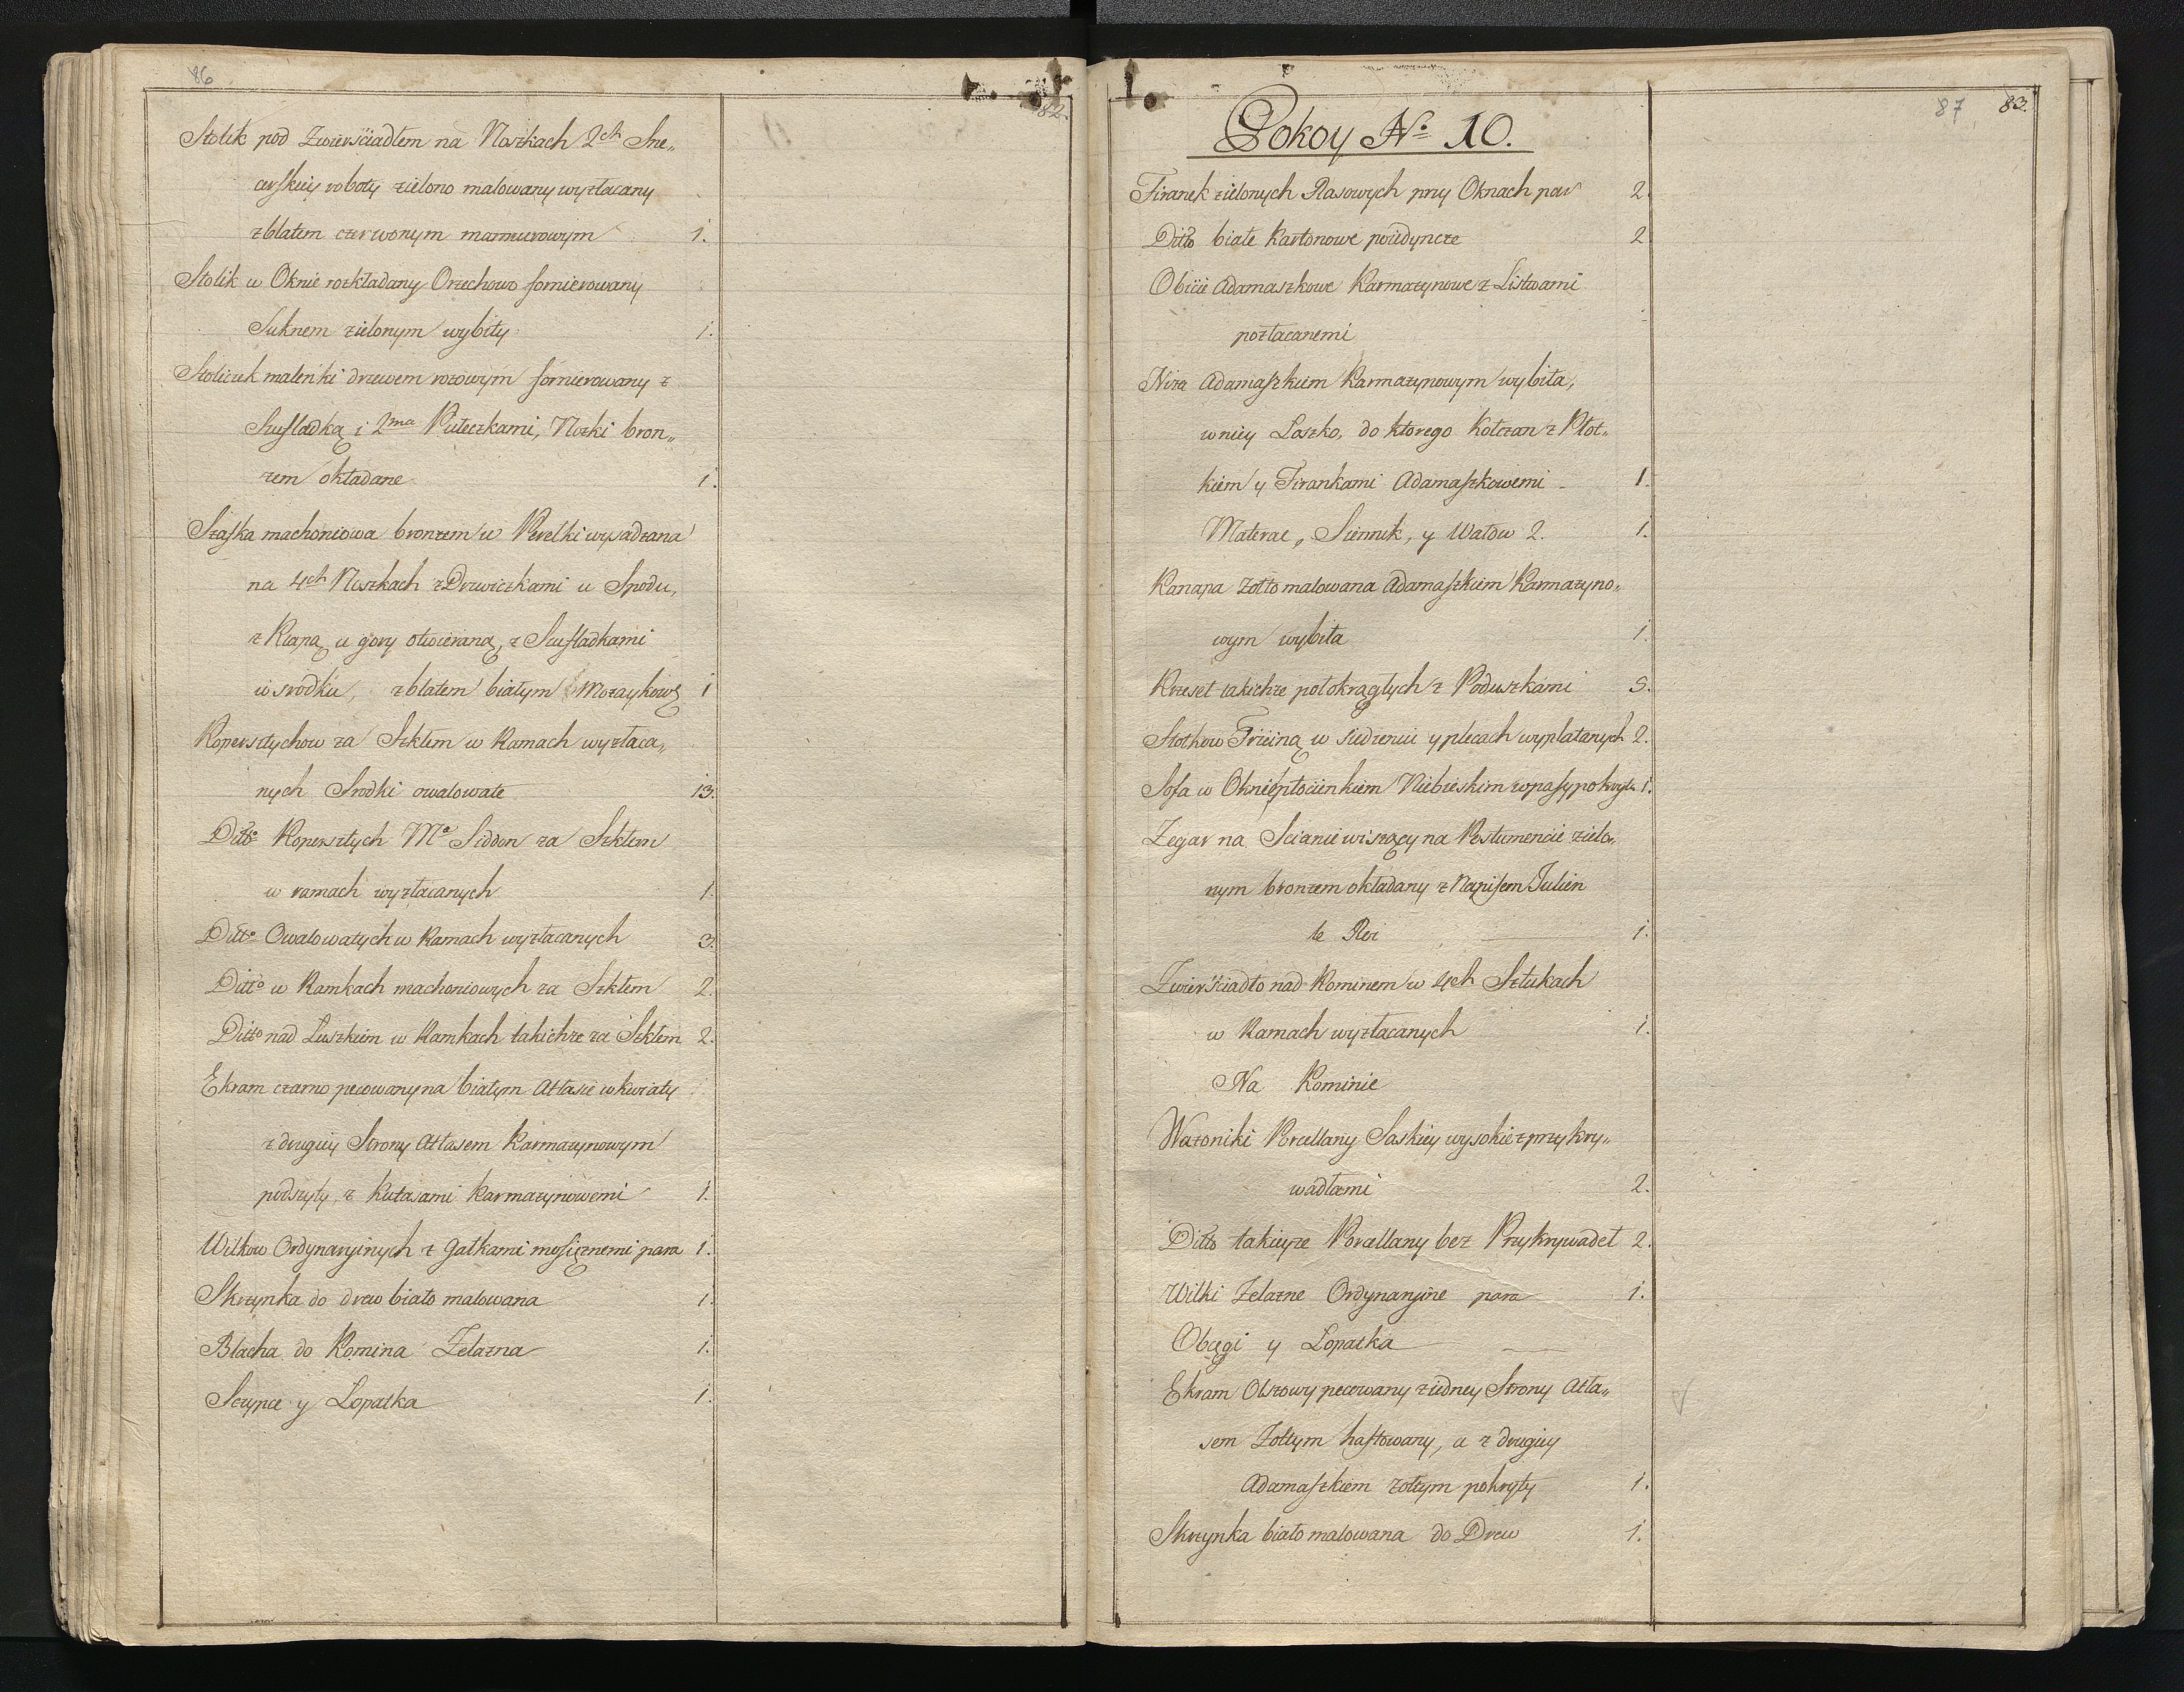 86
82.
Stolik pod Zwierściadłem na Noszkach 2ch Sne„
cerskiey roboty zielono malowany wyzłacany
z blatem czerwonym marmurowym 1.
Stolik w Oknie rozkładany Orzechowo fornierowany
Suknem zielonym wybity 1.
Stoliczek maleńki drzewem rozowym fornierowany z
Szufladką i 2ma Puteczkami, Nozki bron„
zem okładane 1.
Szafka machoniowa bronzem w Perelki wysadzana
na 4ch Noszkach z Drzwiczkami u Spodu,
z Klapą u gory otwieraną, z Szufladkami
w srodku, z blatem białym Mozaykową 1
Kopersztychow za Szkłem w Ramach wyzłaca„
nych Srodki owalowate 13.
Ditto Kopersztych Me Siddon za Szkłem
w ramach wyzłacanych 1.
Ditto Owalowatych w Ramach wyzłacanych 3.
Ditto w Ramkach machoniowych za Szkłem 2.
Ditto nad Luszkiem w Ramkach takichze za Szkłem 2.
Ekram czarno pecowany na białym Atłasie w kwiaty
z drugiey Strony Atłasem Karmazynowym
podszyty, z Kutasami Karmazynowemi 1.
Wilkow Ordynaryinych z Gałkami mosięznemi para 1.
Skrzynka do drew biało malowana 1.
Blacha do Komina Zelazna 1.
Szczypce y Lopatka 1.
87 83.
Pokoy No 10.
Firanek zielonych Rasowych przy Oknach par 2.
Ditto białe Kartonowe poiedyncze 2
Obicie Adamaszkowe Karmazynowe z Listwami
pozłacanemi
Niza Adamaszkiem Karmazynowym wybita,
w niey Loszko, do ktorego Kołczan z Płot„
kiem y Firankami Adamaszkowemi 1.
Materac, Siennik, y Wałow 2. 1.
Kanapa zołto malowana Adamaszkiem Karmazyno„
wym wybita 1.
Krzeseł takichze połokrągłych z Poduszkami 5.
Stołkow Trzciną w siedzeniu y plecach wyplatanych 2.
Sofa w Oknie płocienkiem Niebieskim w pasy pokryta 1.
Zegar na Scianie wiszący na Postumencie zielo„
nym bronzem okładany z Napisem Julien
le Roi 1.
Zwierściadło nad Kominem w 4ch Sztukach
w Ramach wyzłacanych 1.
Na Kominie
Wazoniki Porcellany Saskiey wysokie z przykry„
wadłami 2.
Ditto takieyze Porcellany bez Przykrywadeł 2.
Wilki Zelazne Ordynaryine para 1.
Obcęgi y Lopatka
Ekram Olszowy pecowany z iedney Strony Atła„
sem Zołtym haftowany, a z drugiey
Adamaszkiem zołtym pokryty 1.
Skrzynka biało malowana do Drew 1.